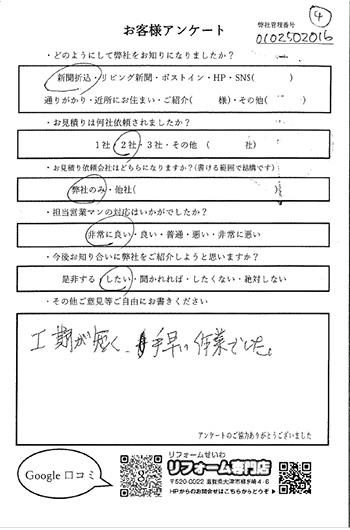 ④
お客様アンケート
弊社管理番号
0102502016
・どのようにして弊社をお知りになりましたか？
新聞折込・リビング新聞・ポストイン・HP・SNS( )
通りがかり・近所にお住まい・ご紹介( 様)・その他( )
・お見積りは何社依頼されましたか？
1社・2社・3社・その他 ( 社)
・お見積り依頼会社はどちらになりますか？(書ける範囲で結構です)
弊社のみ・他社( )
・担当営業マンの対応はいかがでしたか？
非常に良い・良い・普通・悪い・非常に悪い
・今後お知り合いに弊社をご紹介しようと思いますか？
是非する・したい・聞かれれば・したくない・絶対しない
・その他ご意見等ご自由にお書きください
工期が短く、手早い作業でした。
アンケートのご協力ありがとうございました
Google 口コミ
リフォームせいわ
リフォーム専門店
〒520-0022 滋賀県大津市柳ヶ崎4-6
HPからのお問合せはこちらからどうぞ